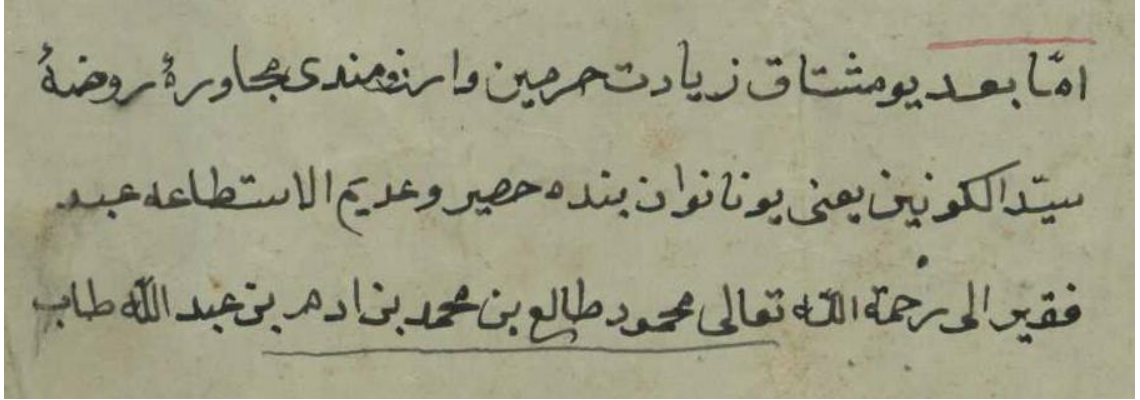 امّا بعد يو مشتاق زيادت حرمين وارزومندى مجاورۀ روضۀ
سيّد الكونين يعنى يو ناتوان بنده حصير وعديم الاستطاعه عبد
فقير الى رحمة الله تعالى محمود طالع بن محمد بن ادهم بن عبد الله طاب